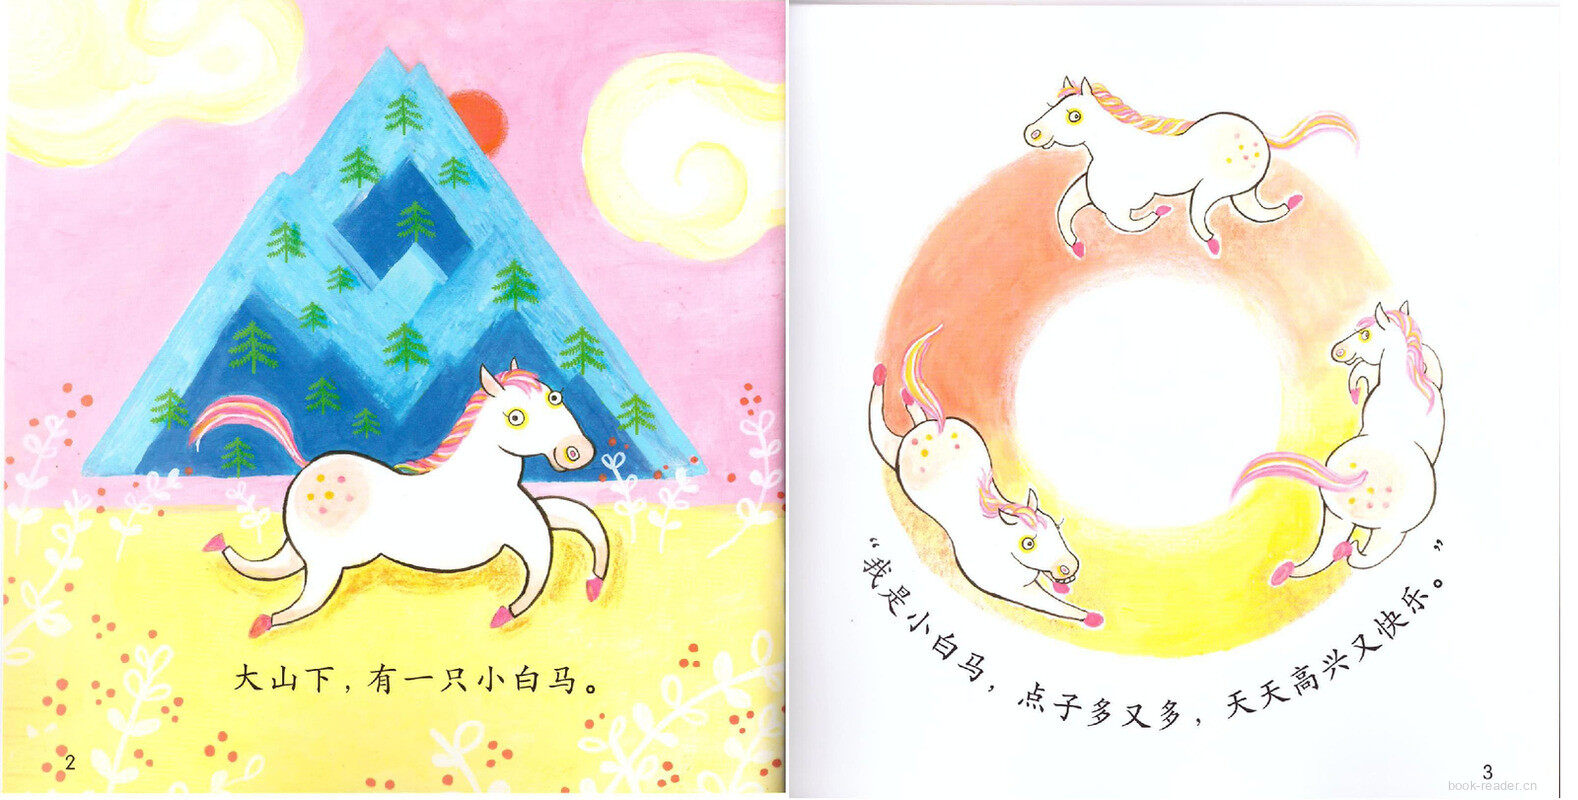 大山下，有一只小白马。
2
“我是小白马，点子多又多，天天高兴又快乐。”
3
book-reader.cn